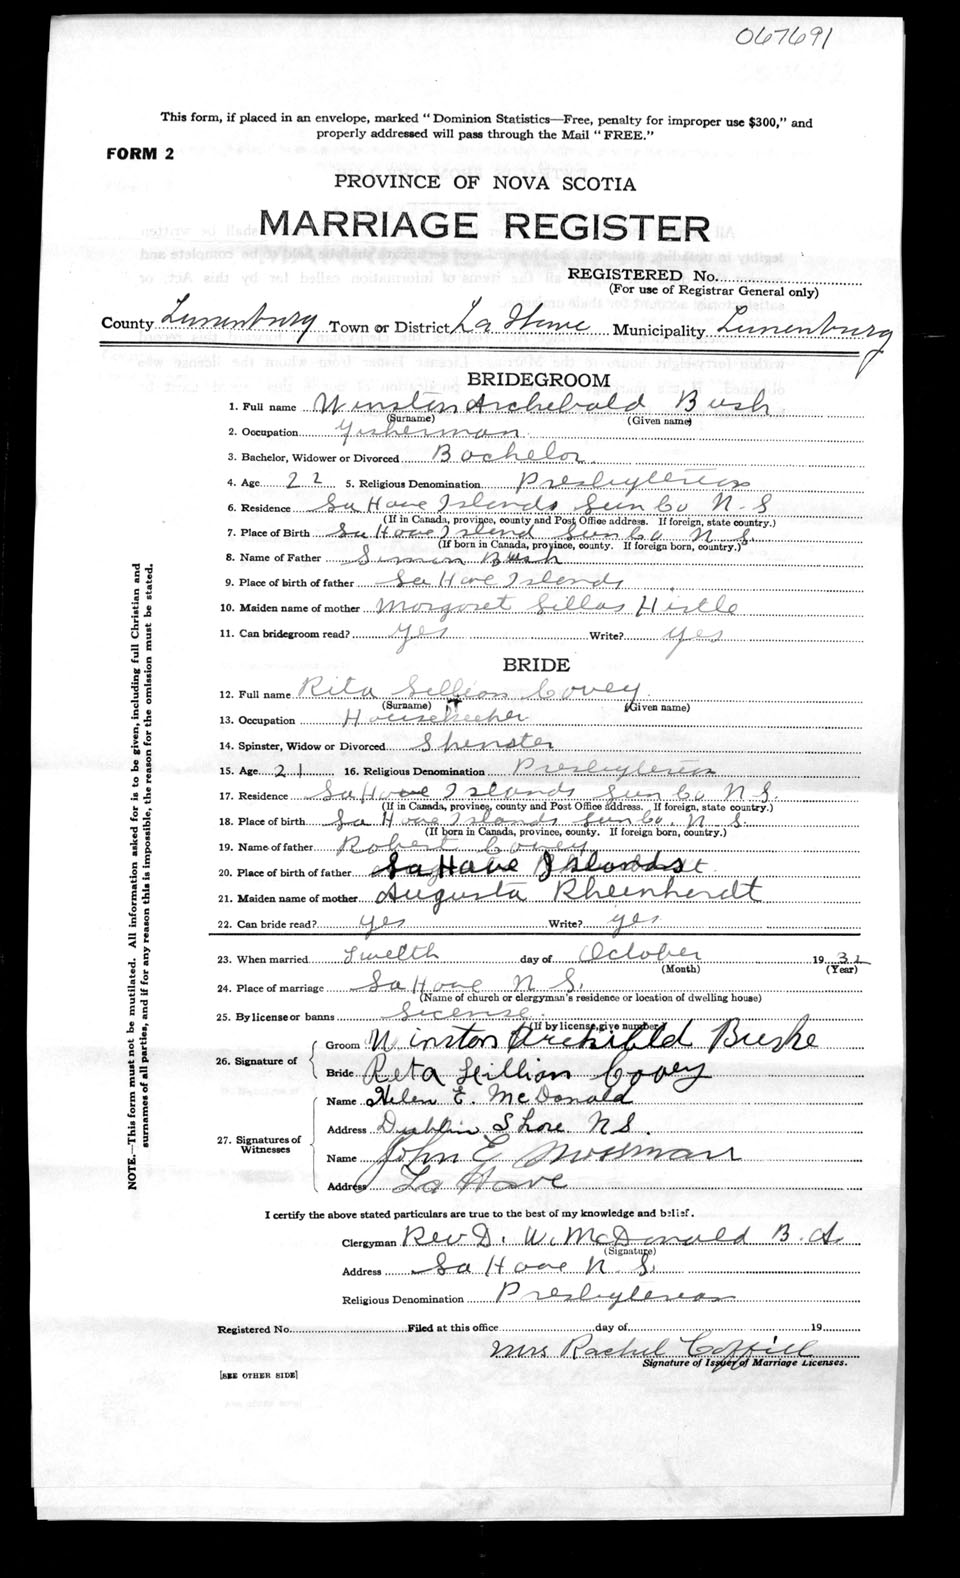 067691
This form, if placed in an envelope, marked "Dominion Statistics—Free, penalty for improper use $300," and
properly addressed will pass through the Mail "FREE."
FORM 2
PROVINCE OF NOVA SCOTIA
MARRIAGE REGISTER
REGISTERED No.
(For use of Registrar General only)
County Lunenburg Town or District La Have Municipality Lunenburg
BRIDEGROOM
1. Full name Winston Archibald Bush
(Surname) (Given name)
2. Occupation Fisherman
3. Bachelor, Widower or Divorced Bachelor
4. Age 22 5. Religious Denomination Presbyterian
6. Residence La Have Islands Lun Co N.S
(If in Canada, province, county and Post Office address. If foreign, state country.)
7. Place of Birth La Have Island Lun Co. N.S.
(If born in Canada, province, county. If foreign born, country.)
8. Name of Father Simon Bush
9. Place of birth of father La Have Islands
10. Maiden name of mother Margaret Hirtle
11. Can bridegroom read? yes Write? yes
BRIDE
12. Full name Rita Lillian Covey
(Surname) (Given name)
13. Occupation Housekeeper
14. Spinster, Widow or Divorced Spinster
15. Age 21 16. Religious Denomination Presbyterian
17. Residence La Have Islands Lun Co N.S.
(If in Canada, province, county and Post Office address. If foreign, state country.)
18. Place of birth La Have Islands Lun Co. N.S.
(If born in Canada, province, county. If foreign born, country.)
19. Name of father Robert Covey
20. Place of birth of father La Have Islands
21. Maiden name of mother Augusta Rheinherdt
22. Can bride read? yes Write? yes
23. When married Twelth day of October 1932
(Month) (Year)
24. Place of marriage La Have N.S.
(Name of church or clergyman's residence or location of dwelling house)
25. By license or banns License
(If by license, give number)
26. Signature of Groom Winston Archibald Bushe
Bride Rita Lillian Covey
27. Signatures of Witnesses Name Helen E. McDonald
Address Dublin Shore N.S.
Name John E Mosman
Address La Have
I certify the above stated particulars are true to the best of my knowledge and belief.
Clergyman Rev D. W. McDonald B.A.
(Signature)
Address La Have N.S.
Religious Denomination Presbyterian
Registered No. Filed at this office day of 19
Mrs Rachel
Signature of Issuer of Marriage Licenses.
[SEE OTHER SIDE]
NOTE.—This form must not be mutilated. All information asked for is to be given, including full Christian and
surnames of all parties, and if for any reason this is impossible, the reason for the omission must be stated.